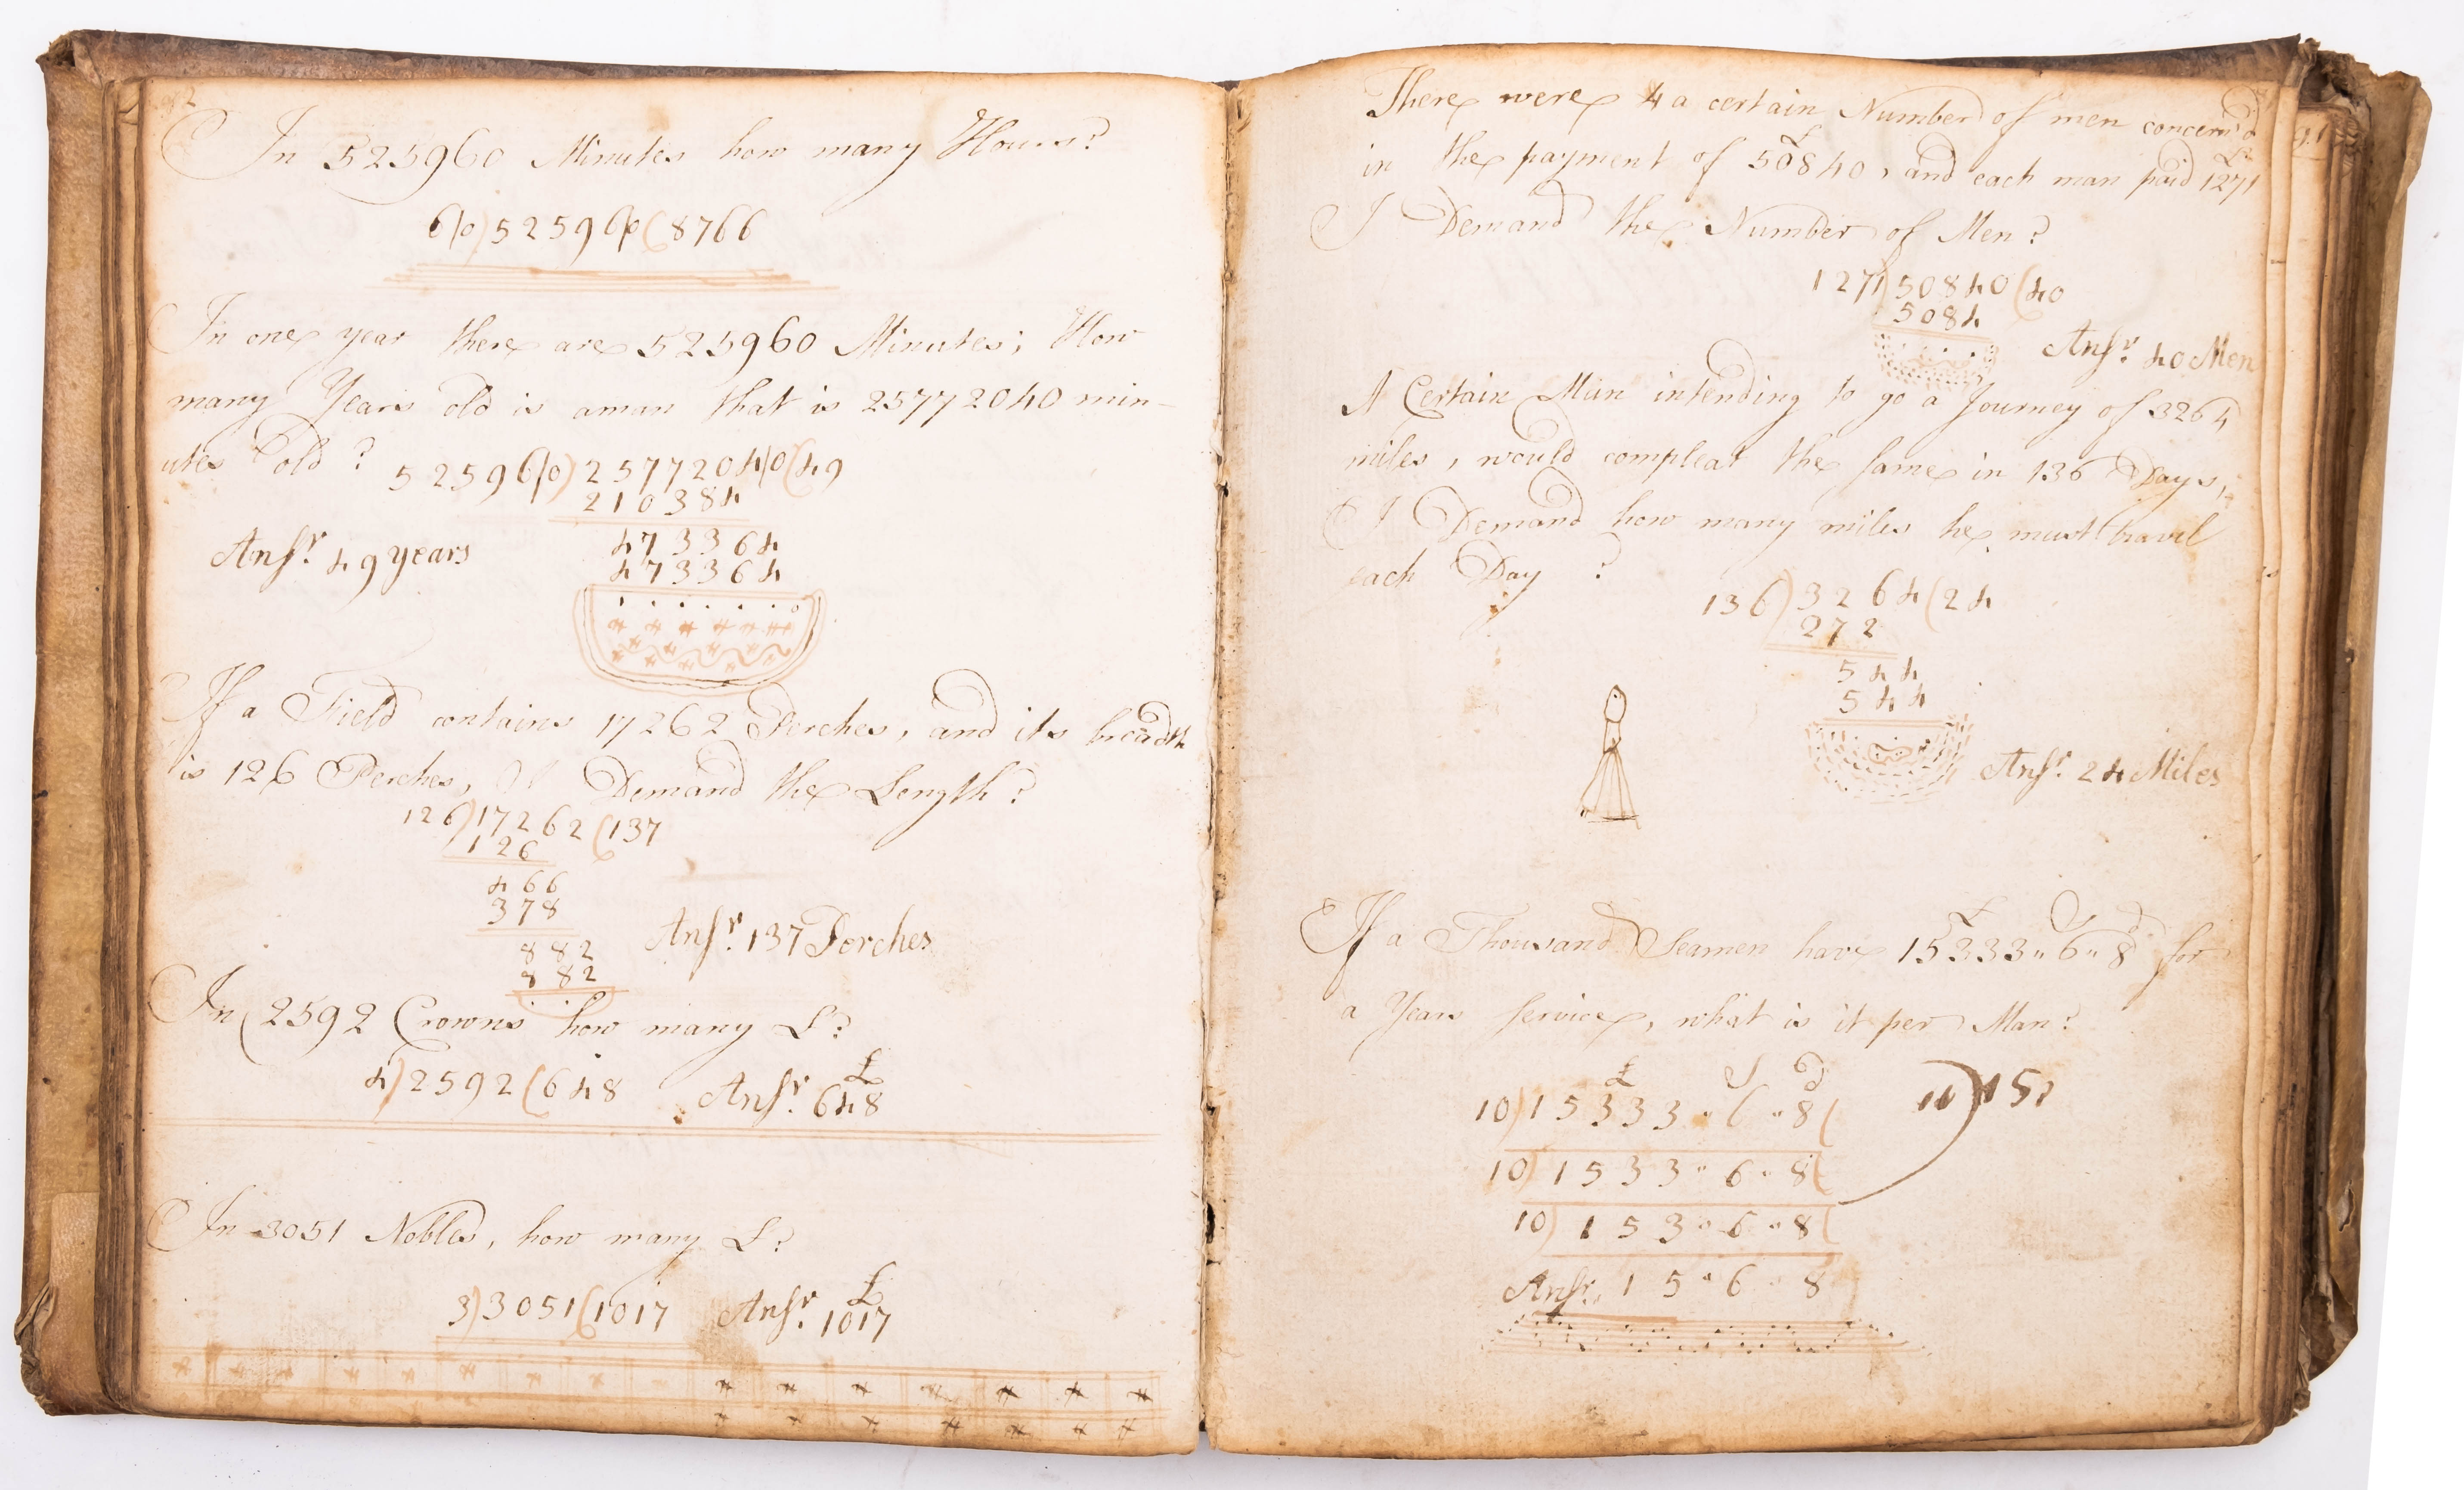 In 525960 Minutes how many Hours?
6|0) 52596|0 (8766
In one year there are 525960 Minutes; How
many Years old is a man that is 25772040 min-
utes old?
52596|0) 2577204|0 (49
210384
473364
473364
Ansr. 49 years
If a Field contains 17262 Perches, and its breadth
is 126 Perches, I Demand the Length?
126) 17262 (137
126
466
378
882
882
Ansr. 137 Perches
In 2592 Crowns how many £?
4) 2592 (648 Ansr. £ 648
In 3051 Nobles, how many £?
3) 3051 (1017 Ansr. £ 1017
There were 4 a certain Number of men concern'd
in the payment of £ 50840, and each man paid £ 1271
I Demand the Number of Men?
1271) 50840 (40
5084
Ansr. 40 Men
A Certain Man intending to go a Journey of 3264
miles, would compleat the same in 136 Days,
I Demand how many miles he must travil
each Day?
136) 3264 (24
272
544
544
Ansr. 24 Miles
If a Thousand Seamen have £ 15333 " S 6 " d 8 for
a Years service, what is it per Man?
£ S d
10) 15333 " 6 " 8 (
10) 1533 " 6 " 8 (
10) 153 " 6 " 8 (
Ansr. 15 " 6 " 8